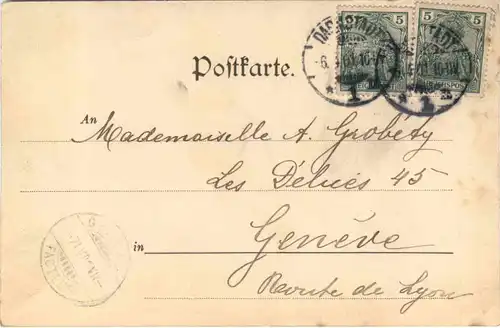 5 5
DARMSTADT
1
1
Postkarte.
An
Mademoiselle A. Grobéty
Les Délices 45
in Genève
Route de Lyon